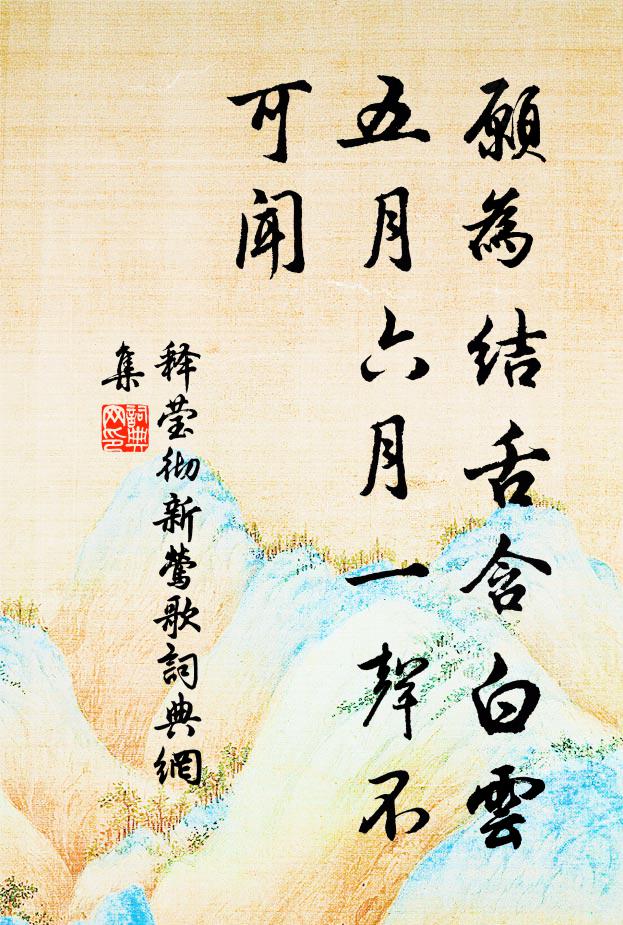 願為結舌含白雲
五月六月一聲不
可聞
释莹彻新鶯歌詞典網
集
詞典
网印